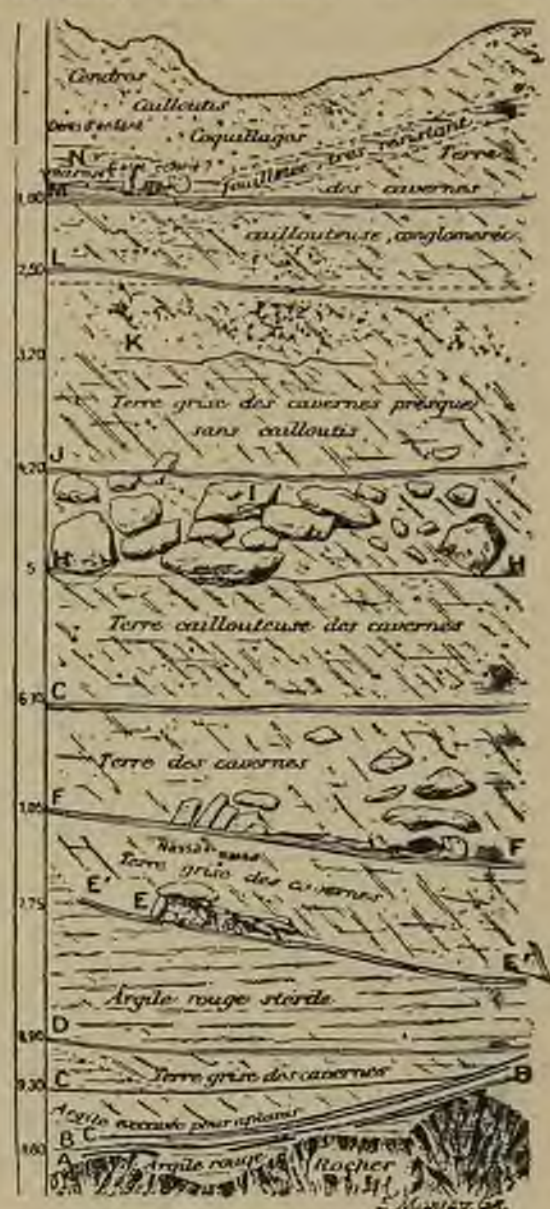 Cendres
Cailloutis
Coquillages
N
feuilletée très resistant
Terre
M
des cavernes
1,80
caillouteuse, conglomérée
L
2,50
K
3,20
Terre grise des cavernes presque
sans cailloutis
J
4,20
I
H H
5
Terre caillouteuse des cavernes
C
6,10
Terre des cavernes
F
F
Terre grise des cavernes
E' E
7,75
E'
Argile rouge stérile
D
8,90
Terre grise des cavernes
B
C
9,30
Argile
B C
A
Argile rouge Rocher